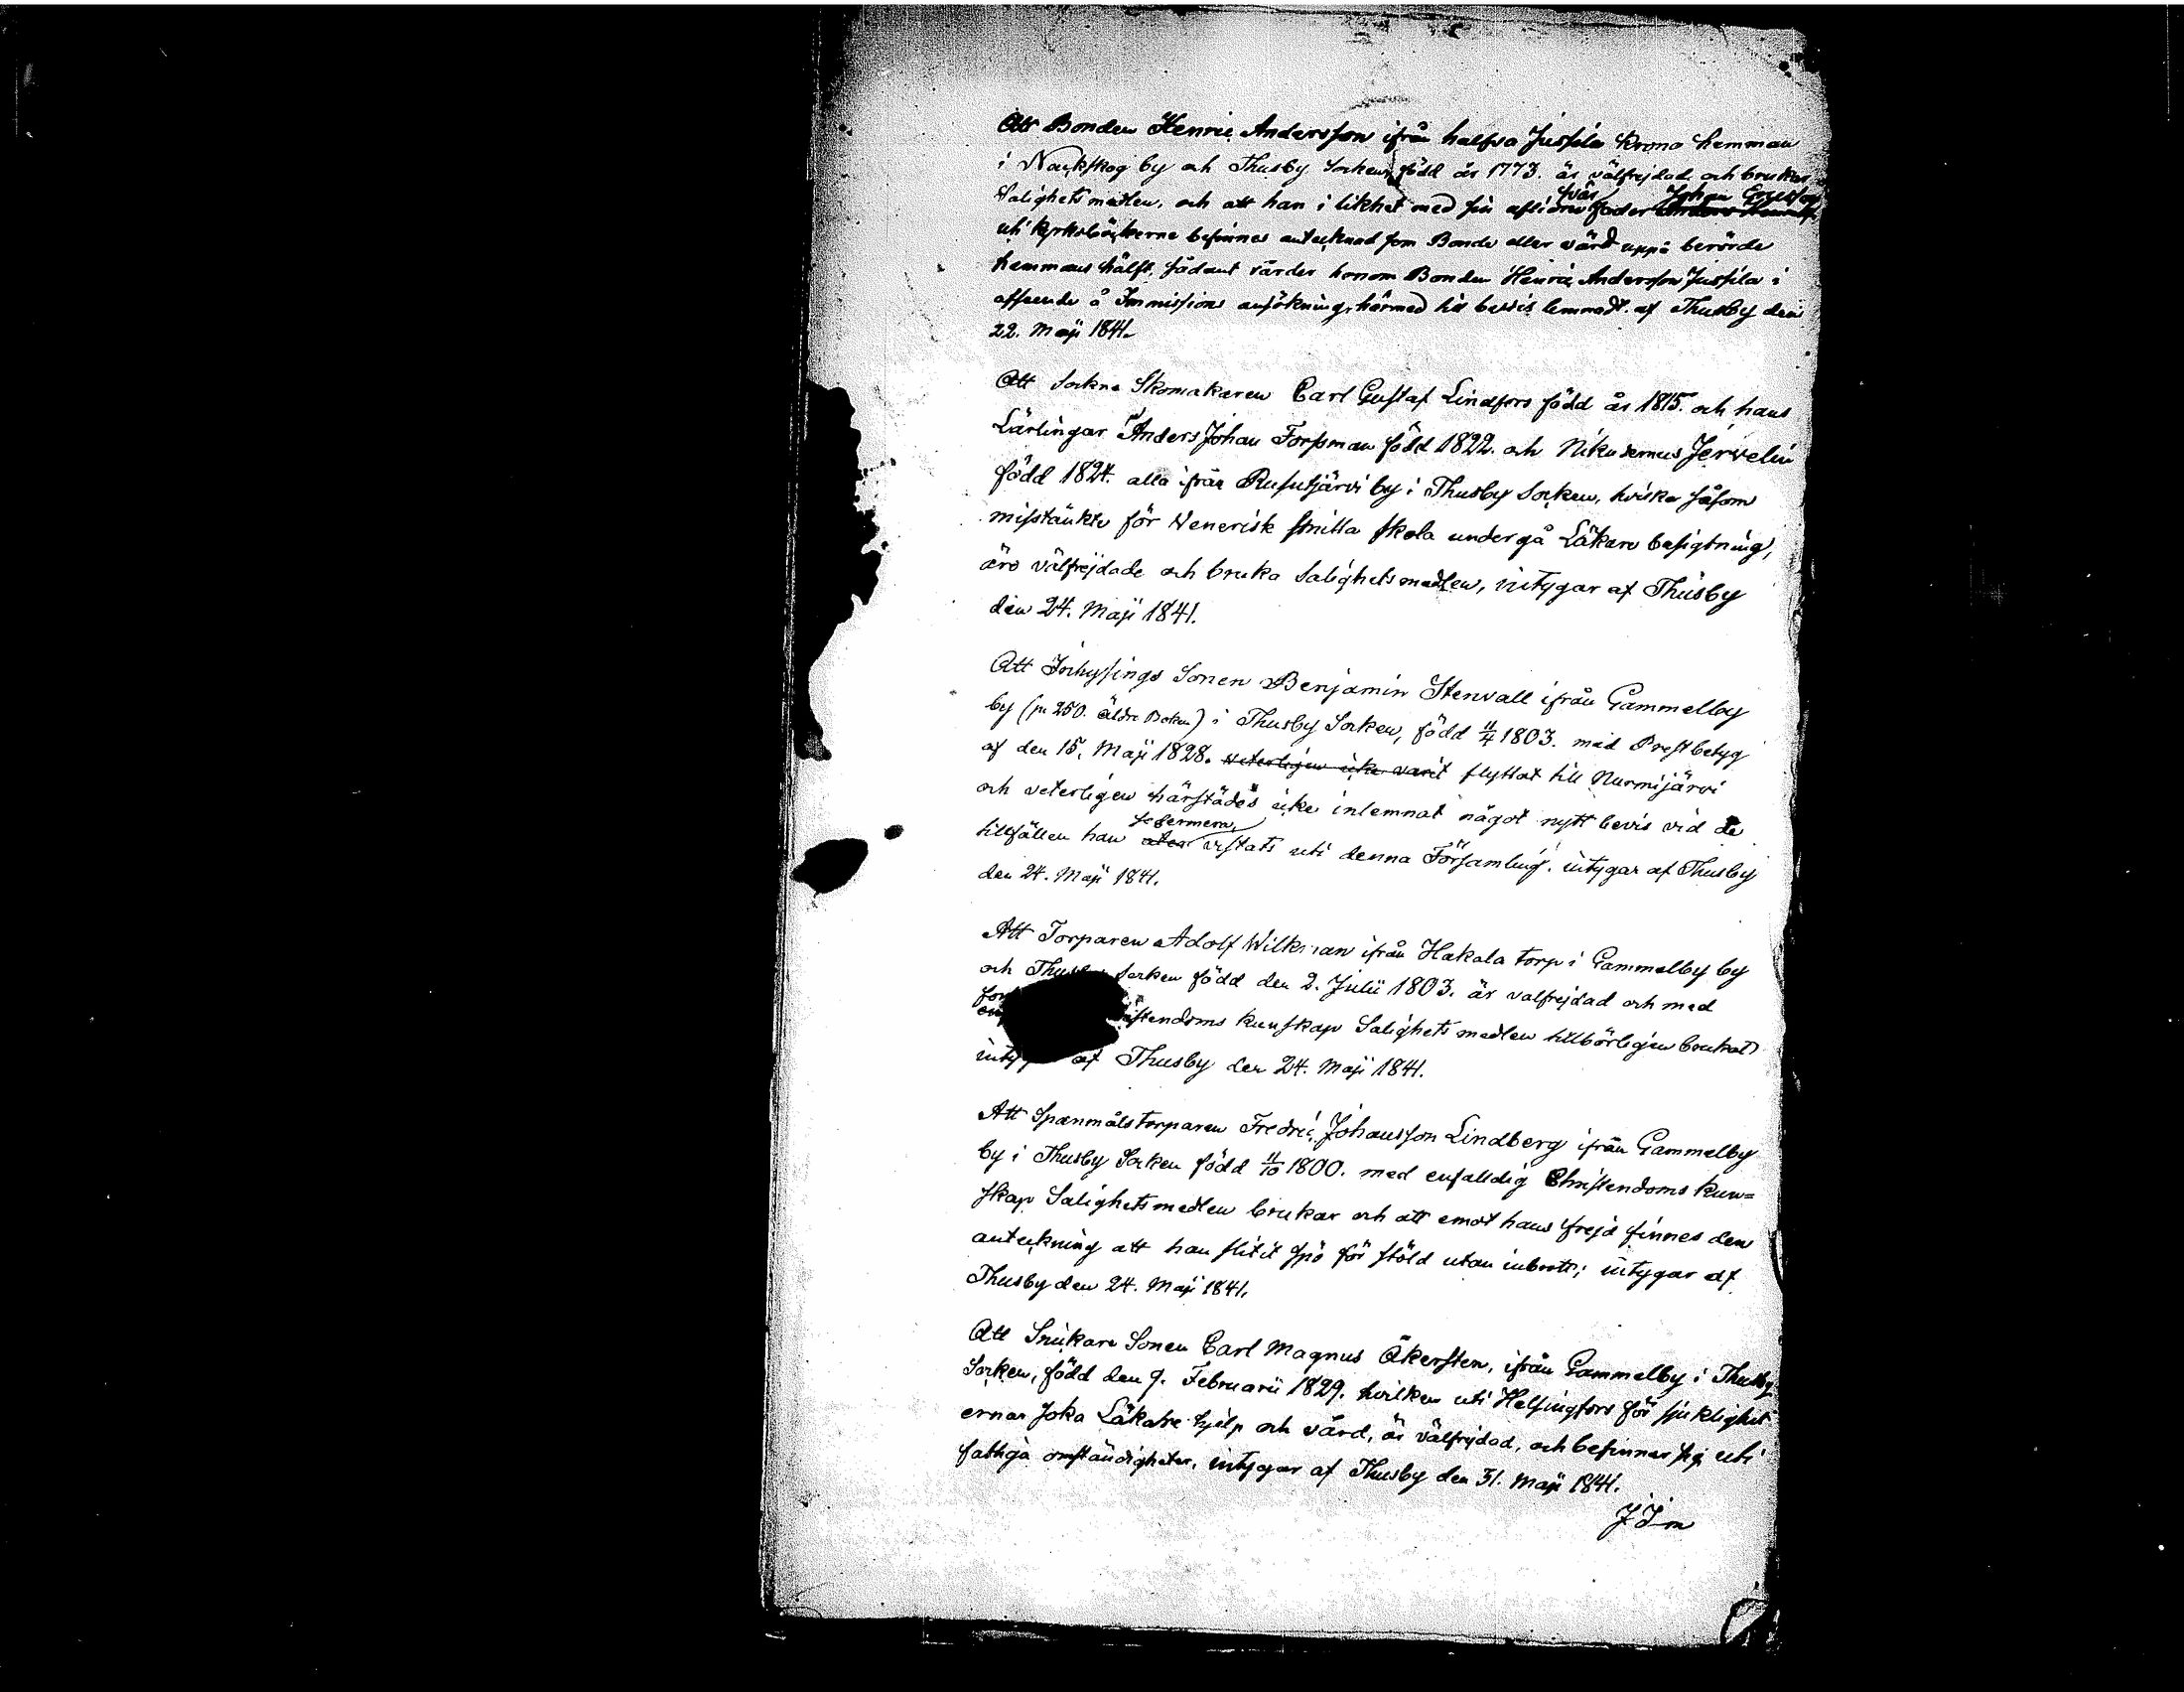 Att Bonden Henric Andersson ifrån halfva Jussila Krono hemman
i Nackskog by och Thusby Socken, född år 1773. är välfrejdad och brukar
Salighetsmedlen, och att han i likhet med sin aflidne Svärfader Johan
uti kyrkoböckerne befinnes antecknad som Bonde eller värd uppå berörde
hemmans hälft, sådant värder honom Bonden Henric Andersson Jussila i
afseende å Immissions ansökning, härmed till bevis lemnadt. af Thusby den
22. Maji 1841.
Att Sockne Skomakaren Carl Gustaf Lindfors född år 1815. och hans
Lärlingar Anders Johan Forssman född 1822. och Nikodemus Jervelin
född 1824. alla ifrån Rusutjärvi by i Thusby Socken, hvilka såsom
misstänkte för Venerisk smitta skola undergå Läkare besigtning,
äro välfrejdade och bruka Salighetsmedlen, intygar af Thusby
den 24. Maji 1841.
Att Inhysings Sonen Benjamin Stenvall ifrån Gammelby
by (p. 250. äldre Boken) i Thusby Socken, född 11/4 1803. med Prestbetyg
af den 15. Maji 1828. veterligen icke varit flyttat till Nurmijärvi
och veterligen härstädes icke inlemnat något nytt bevis vid de
tillfällen han sedermera vistats uti denna Församling. intygar af Thusby
den 24. Maji 1841.
Att Torparen Adolf Wilkman ifrån Hakala torp i Gammelby by
och Thusby Socken född den 2. Julii 1803. är välfrejdad och med
istendoms kunskap Salighetsmedlen tillbörligen brukat
intygar af Thusby den 24. Maji 1841.
Att Spanmålstorparen Fredric Johansson Lindberg ifrån Gammelby
by i Thusby Socken född 11/10 1800. med enfalldig Christendoms kun=
skap Salighetsmedlen brukar och att emot hans frejd finnes den
anteckning att han slitit spö för stöld utan inbrott; intygar af
Thusby den 24. Maji 1841.
Att Snickare Sonen Carl Magnus Åkersten, ifrån Gammelby i Thusby
Socken, född den 9. Februarii 1829. hvilken uti Helsingfors för sjuklighet
ernar söka Läkare hjelp och vård, är välfrejdad, och befinner sig uti
fattiga omständigheter, intygar af Thusby den 31. Maji 1841.